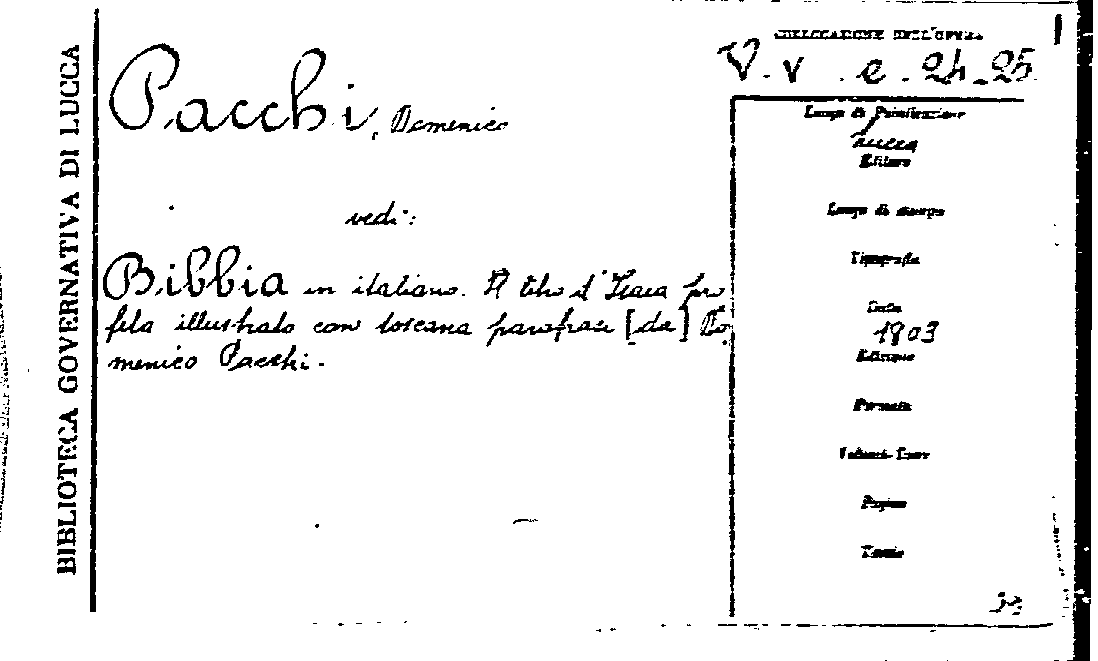 BIBLIOTECA GOVERNATIVA DI LUCCA
Pacchi, Domenico
vedi:
Bibbia in italiano. Il libro d'Isaia pro
feta illustrato con toscana parafrasi [da] Do
menico Pacchi.
COLLOCAZIONE DELL'OPERA
V. v. e. 24-25
Luogo di Pubblicazione
Lucca
Editore
Luogo di stampa
Tipografia
Data
1803
Edizione
Formato
Pagine
Tavole